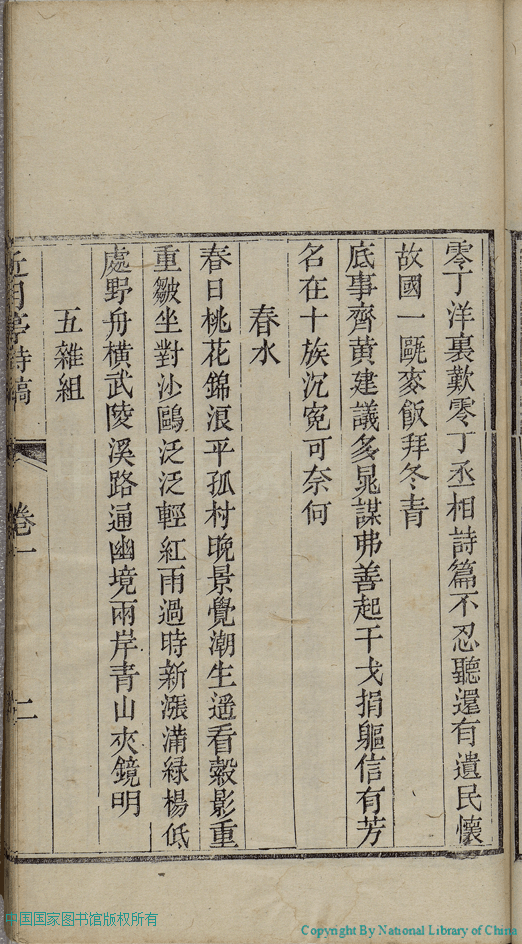 零丁洋裏歎零丁丞相詩篇不忍聽還有遺民懷
故國一甌麥飯拜冬青
底事齊黃建議多晁謀弗善起干戈捐軀信有芳
名在十族沉冤可奈何
春水
春日桃花錦浪平孤村晚景覺潮生遥看縠影重
重皺坐對沙鷗泛泛輕紅雨過時新漲滿緑楊低
處野舟橫武陵溪路通幽境兩岸青山夾鏡明
五雜組
近月亭詩稿
卷一
二
中国国家图书馆版权所有
Copyright By National Library of China